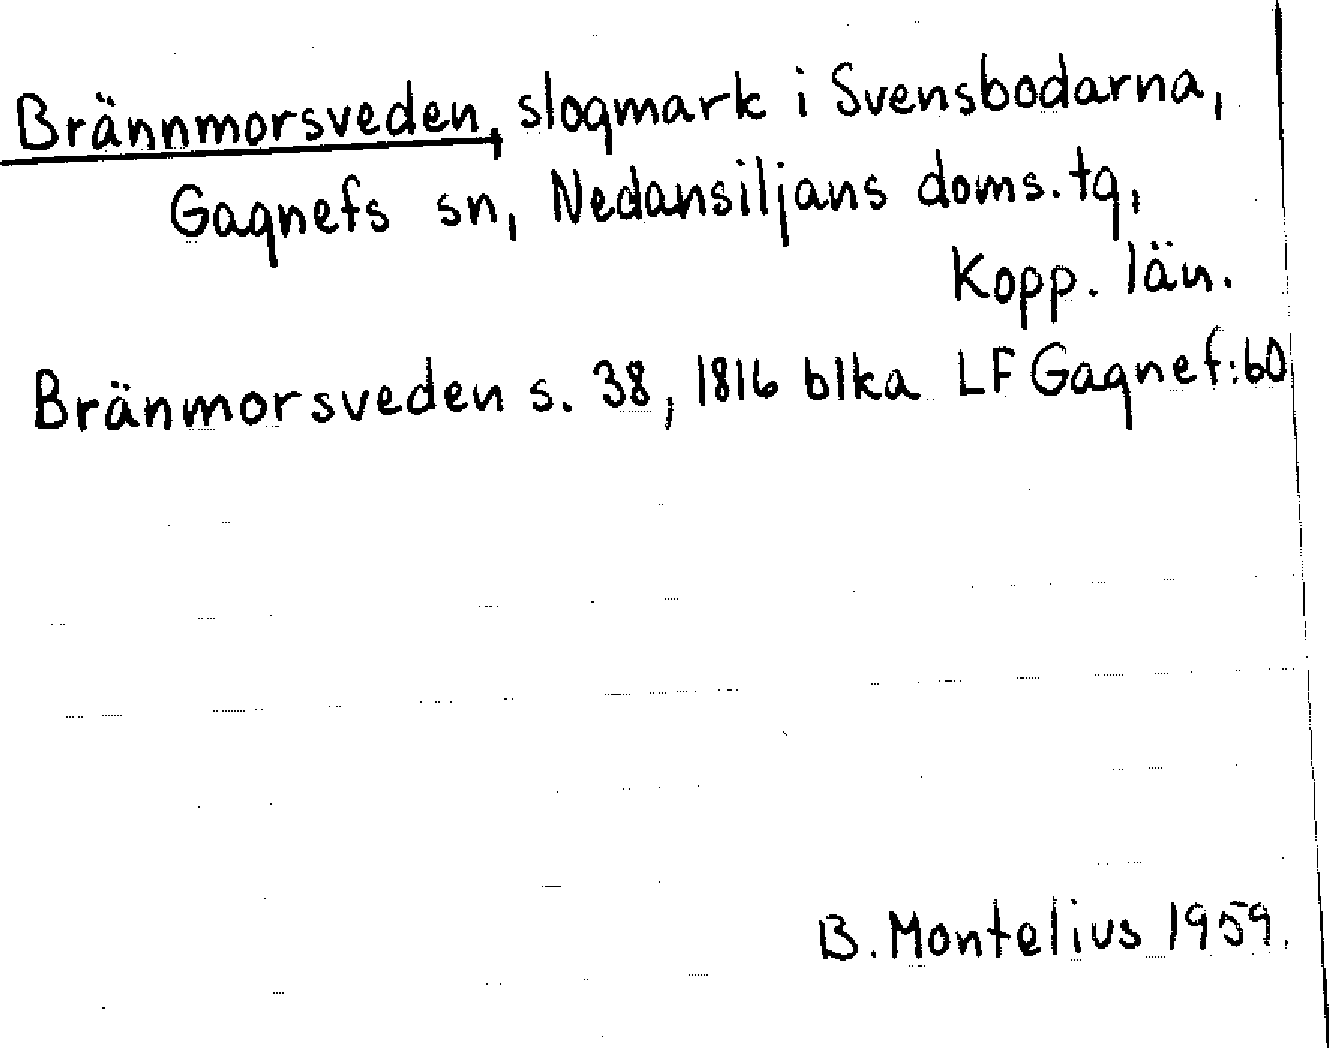 Brännmorsveden, slogmark i Svensbodarna,
Gagnefs sn, Nedansiljans doms. tg,
Kopp. län.
Bränmorsveden s. 38, 1816 blka LF Gagnef:60
B. Montelius 1959.